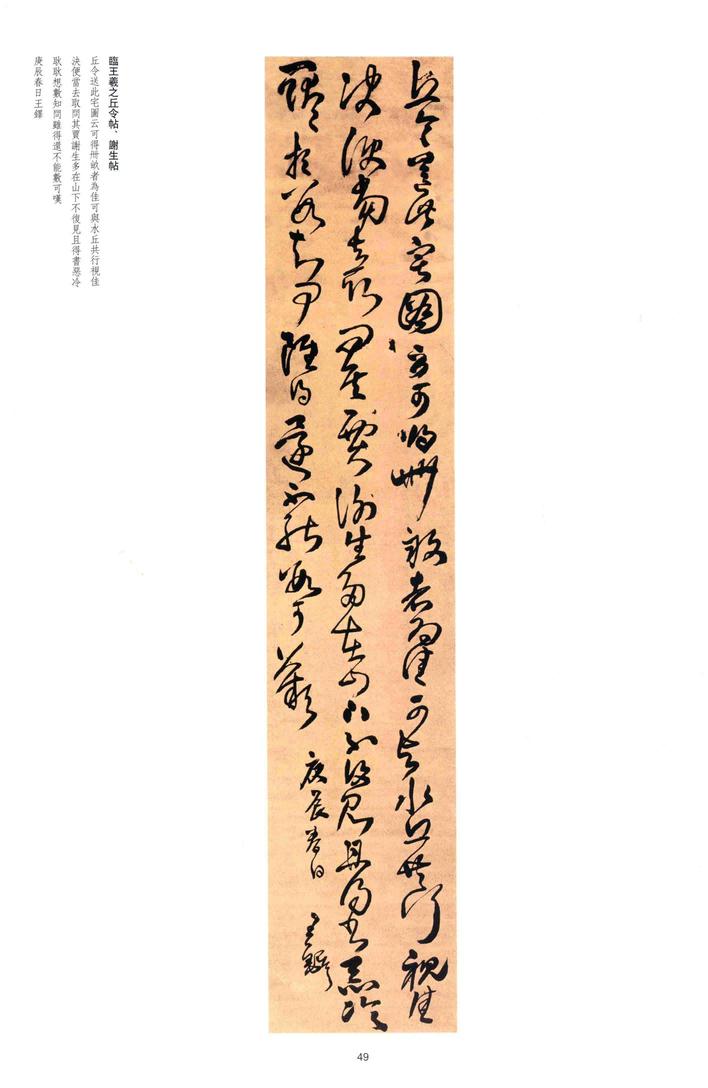 臨王羲之丘令帖、謝生帖
丘令送此宅圖云可得卌畝者為佳可與水丘共行視佳
決便當去取問其賈謝生多在山下不復見且得書惡冷
耿耿想數知問雖得還不能數可嘆
庚辰春日王鐸
丘令送此宅圖云可得卌畝者為佳可與水丘共行視佳
決便當去取問其賈謝生多在山下不復見且得書惡冷
耿耿想數知問雖得還不能數可嘆
庚辰春日王鐸
49